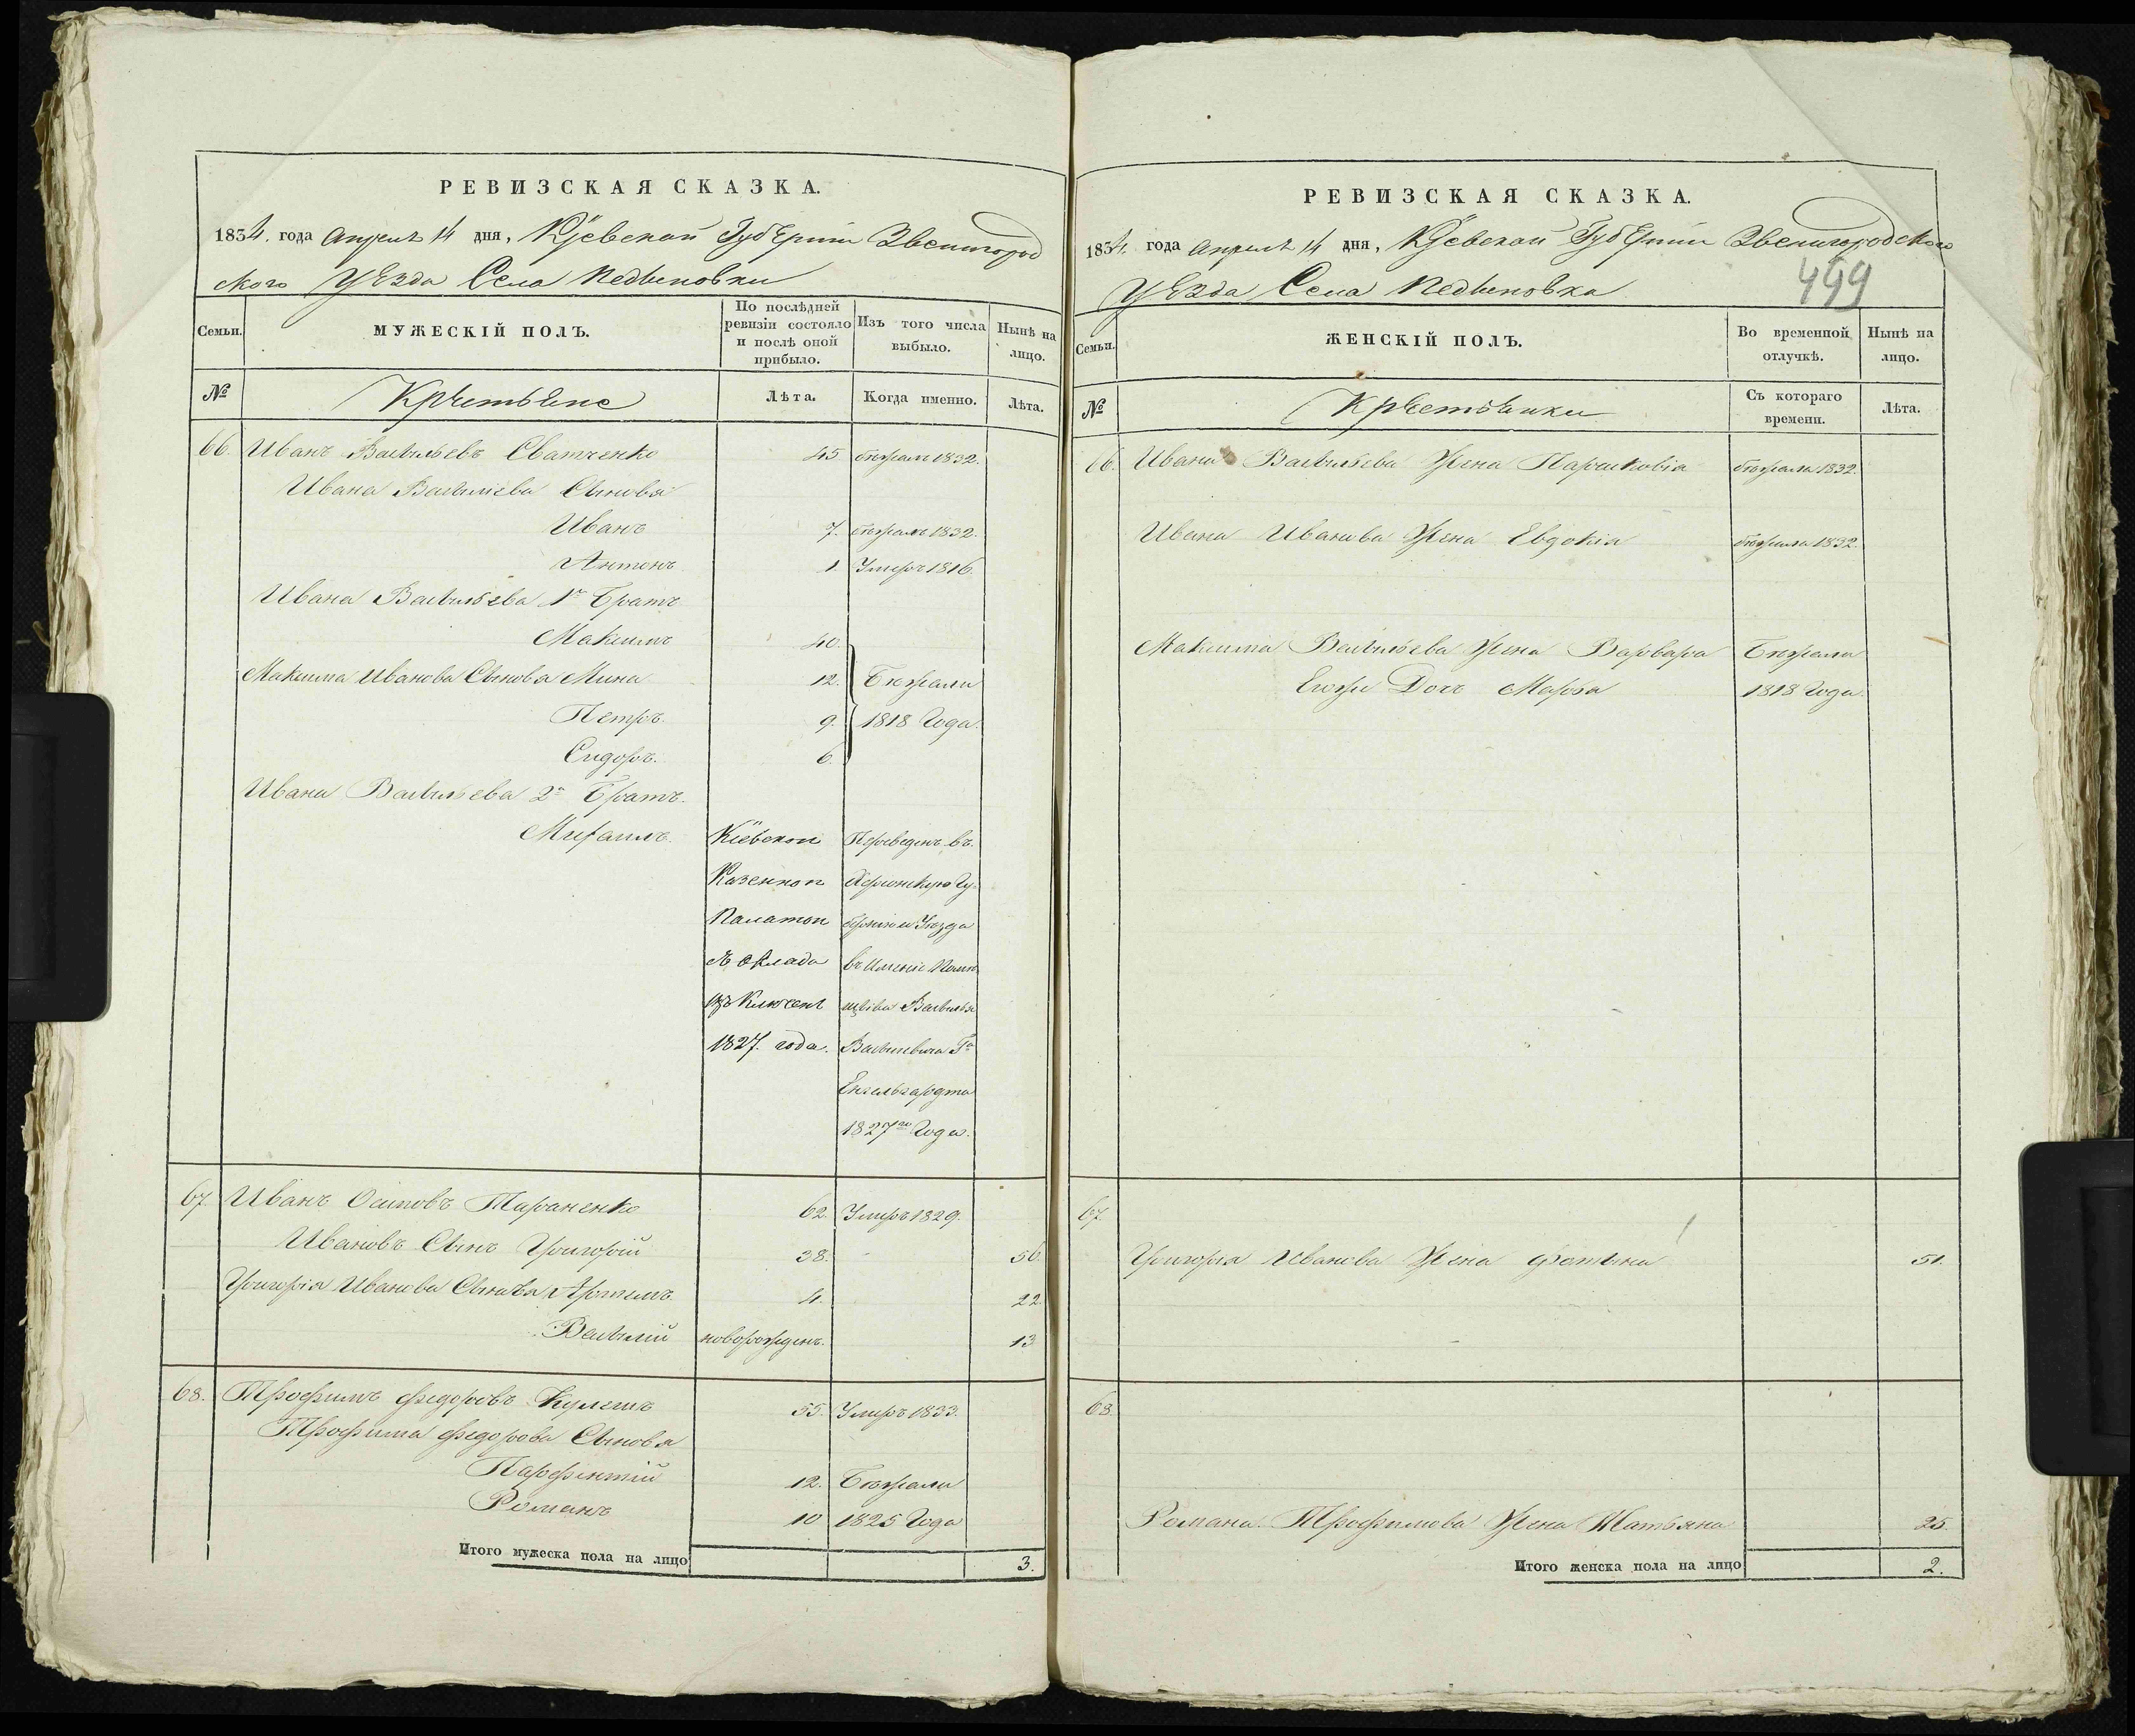 РЕВИЗСКАЯ СКАЗКА.
1834. года Апреля 14 дня, Кіевской Губерніи Звенигород
ского Уезда Села Пединовки
Семьи.
МУЖЕСКІЙ ПОЛЪ.
По послѣдней ревизіи состояло и послѣ оной прибыло.
Изъ того числа выбыло.
Нынѣ на лицо.
№
Крестьяне
Лѣта.
Когда именно.
Лѣта.
66. Иванъ Васильевъ Сватченко 45 бежалъ 1832.
Ивана Васильева Сыновя
Иванъ 7. бежалъ 1832.
Антонъ 1. Умеръ 1816.
Ивана Васильева 1й Братъ
Максимъ 40.
Максима Иванова Сыновя Мина 12. Бежали
Петръ. 9. 1818 Года.
Сидоръ. 6.
Ивана Васильева 2й Братъ.
Михаилъ. Кіевской Переведенъ въ
Казенной Херсонскую Гу-
Палатой бернію и Уезда
съ оклада въ Имение Поме
изъключенъ щика Василья
1827. года. Васильевича Гна
Енгельгардта
1827го Года.
67. Иванъ Осиповъ Тараненко 62. Умеръ 1829.
Ивановъ Сынъ Григорій 38. 56.
Григорія Иванова Сыновя Артемъ 4. 22.
Василій новорожденъ. 13
68. Трофимъ Федоровъ Кулешъ 55. Умеръ 1833.
Трофима Федорова Сыновя
Парфентій 12. Бежали
Романъ 10 1825 Года
Итого мужеска пола на лицо 3.
РЕВИЗСКАЯ СКАЗКА.
1834. года Апреля 14 дня, Кіевской Губерніи Звенигородского
499
Уезда Села Пединовка
Семьи.
ЖЕНСКІЙ ПОЛЪ.
Во временной отлучкѣ.
Нынѣ на лицо.
№
Крестьянки
Съ котораго времени.
Лѣта.
66. Ивана Васильева Жена Парасковія бежала 1832.
Ивана Иванова Жена Евдокія бежала 1832.
Максима Васильева Жена Варвара Бежали
Егожъ Доч Марфа 1818 Года.
67.
Григорія Иванова Жена Фотына 51.
68.
Романа Трофимова Жена Татьяна 25.
Итого женска пола на лицо 2.